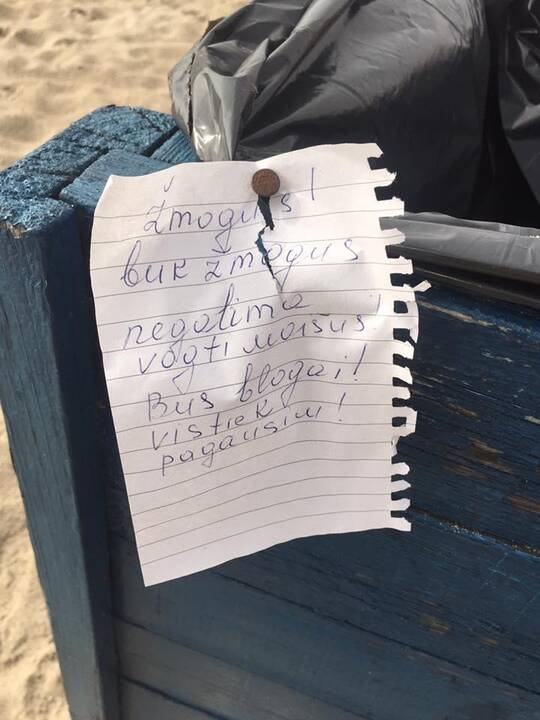 žmogus!
buk žmogus
negalima
vogti maišus!
Bus blogai!
vistiek
pagausim!